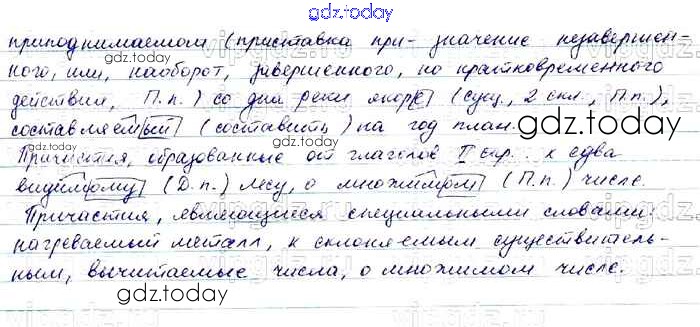 gdz.today
приподнимаемом (приставка при- значение незавершен-
ного, или, наоборот, завершенного, но кратковременного
действия, П.п.) со дна реки якоре (сущ., 2 скл., П.п.),
составляемый (составить) на год план.
gdz.today
gdz.today
Причастия, образованные от глаголов II спр.: к едва
видимому (Д.п.) лесу, о множимом (П.п.) числе.
Причастия, являющиеся специальными словами:
нагреваемый металл, к склоняемым существитель-
ным, вычитаемые числа, о множимом числе.
gdz.today
gdz.today